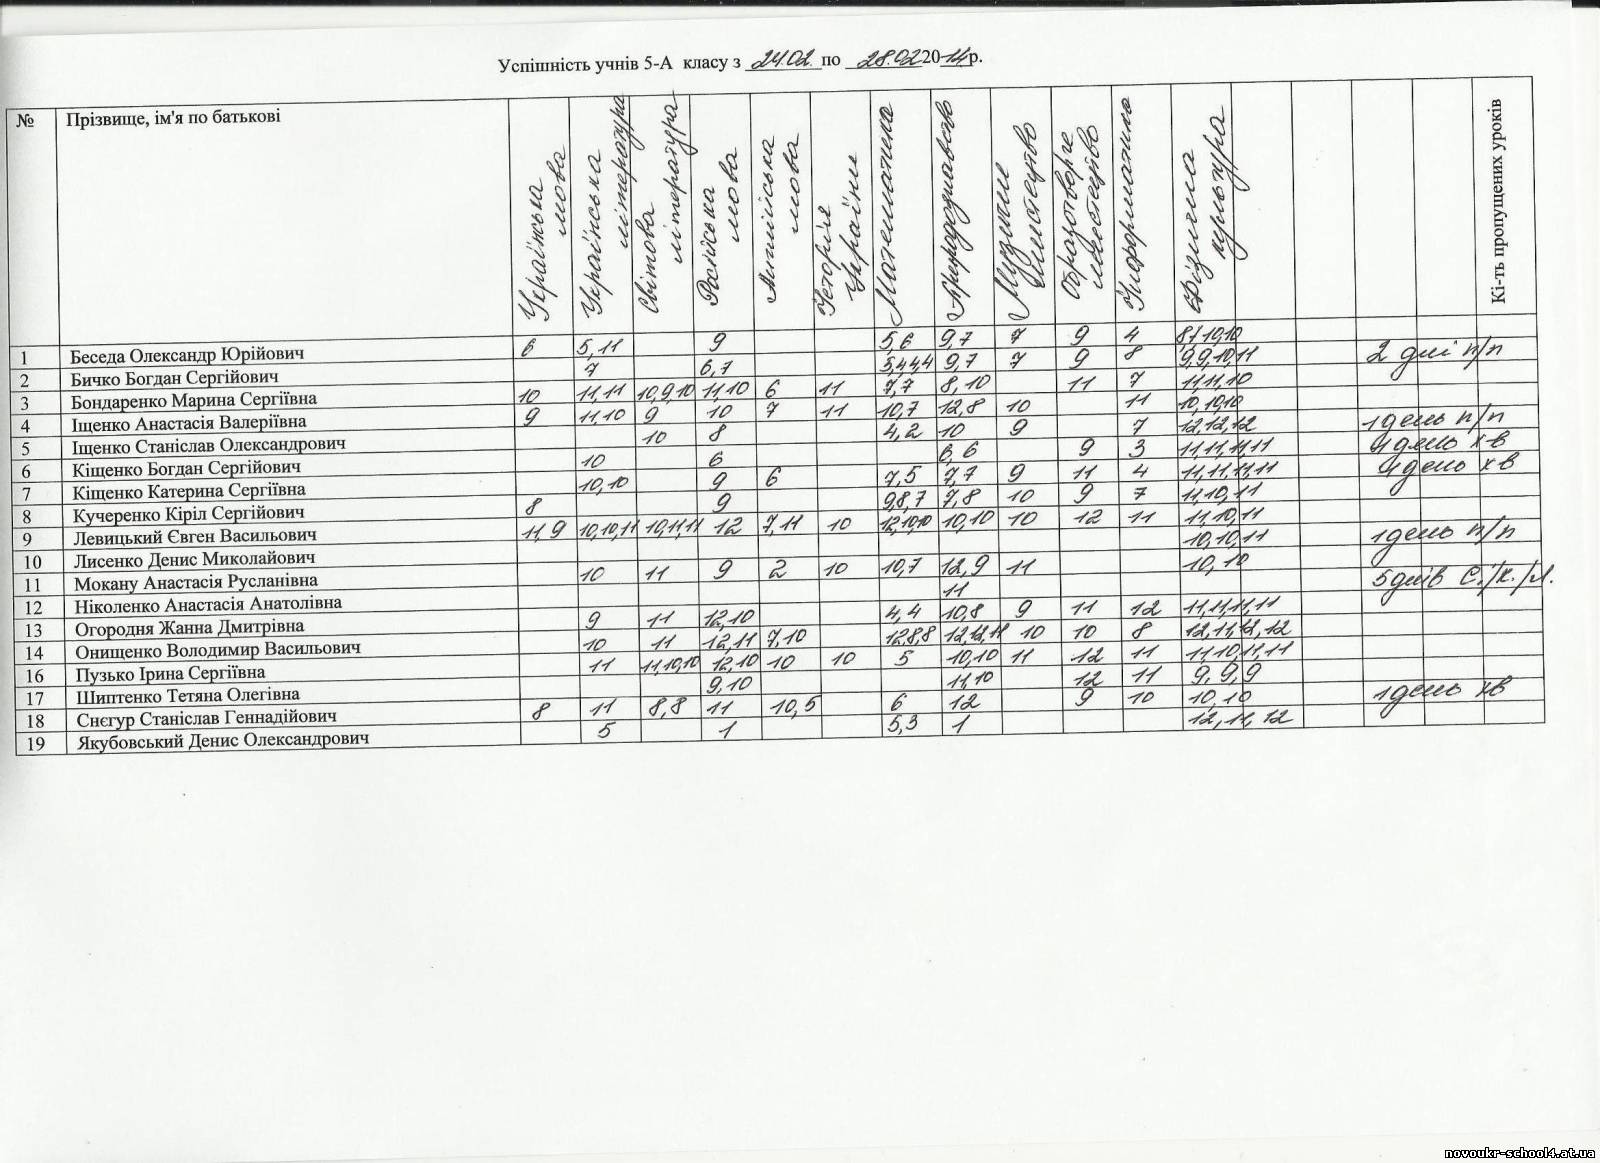 Успішність учнів 5-А класу з 24.02. по 28.02 2014р.
№ Прізвище, ім'я по батькові Українська мова Українська література Світова література Російська мова Англійська мова Історія України Математика Природознавство Музичне мистецтво Образотворче мистецтво Інформатика Фізична культура Кі-ть пропущених уроків
1 Беседа Олександр Юрійович 6 5,11 9 5,6 9,7 7 9 4 10,10
2 Бичко Богдан Сергійович 7 6,7 5,4,4,4 9,7 7 9 8 9,9,10,11 2 дні п/п
3 Бондаренко Марина Сергіївна 10 11,11 10,9,10 11,10 6 11 7,7 8,10 11 7 11,11,10
4 Іщенко Анастасія Валеріївна 9 11,10 9 10 7 11 10,7 12,8 10 11 10,10,10
5 Іщенко Станіслав Олександрович 10 8 4,2 10 9 7 12,12,12 1 день п/п
6 Кіщенко Богдан Сергійович 10 6 6,6 9 3 11,11,11,11 день хв
7 Кіщенко Катерина Сергіївна 10,10 9 6 7,5 7,7 9 11 4 11,11,11,11 день хв
8 Кучеренко Кіріл Сергійович 8 9 9,8,7 7,8 10 9 7 11,10,11
9 Левицький Євген Васильович 11,9 10,10,11 10,11,11 12 7,11 10 12,10,10 10,10 10 12 11 11,10,11
10 Лисенко Денис Миколайович 10,10,11 1 день п/п
11 Мокану Анастасія Русланівна 10 11 9 2 10 10,7 12,9 11 10,10
12 Ніколенко Анастасія Анатолівна 11 5 днів с./к./л.
13 Огородня Жанна Дмитрівна 9 11 12,10 4,4 10,8 9 11 12 11,11,11,11
14 Онищенко Володимир Васильович 10 11 12,11 7,10 12,8,8 12,12,11 10 10 8 12,11,12,12
16 Пузько Ірина Сергіївна 11 11,10,10 12,10 10 10 5 10,10 11 12 11 11,10,11,11
17 Шиптенко Тетяна Олегівна 9,10 11,10 12 11 9,9,9
18 Снєгур Станіслав Геннадійович 8 11 8,8 11 10,5 6 12 9 10 10,10 1 день хв
19 Якубовський Денис Олександрович 5 1 5,3 1 12,11,12
novoukr-school4.at.ua